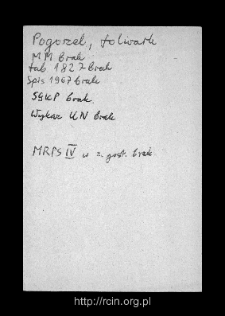 Pogorzel, folwark
MM brak
tab 1827 brak
Spis 1967 brak
SGKP brak.
Wykaz UN brak
MRPS IV w z. gost. brak
http://rcin.org.pl